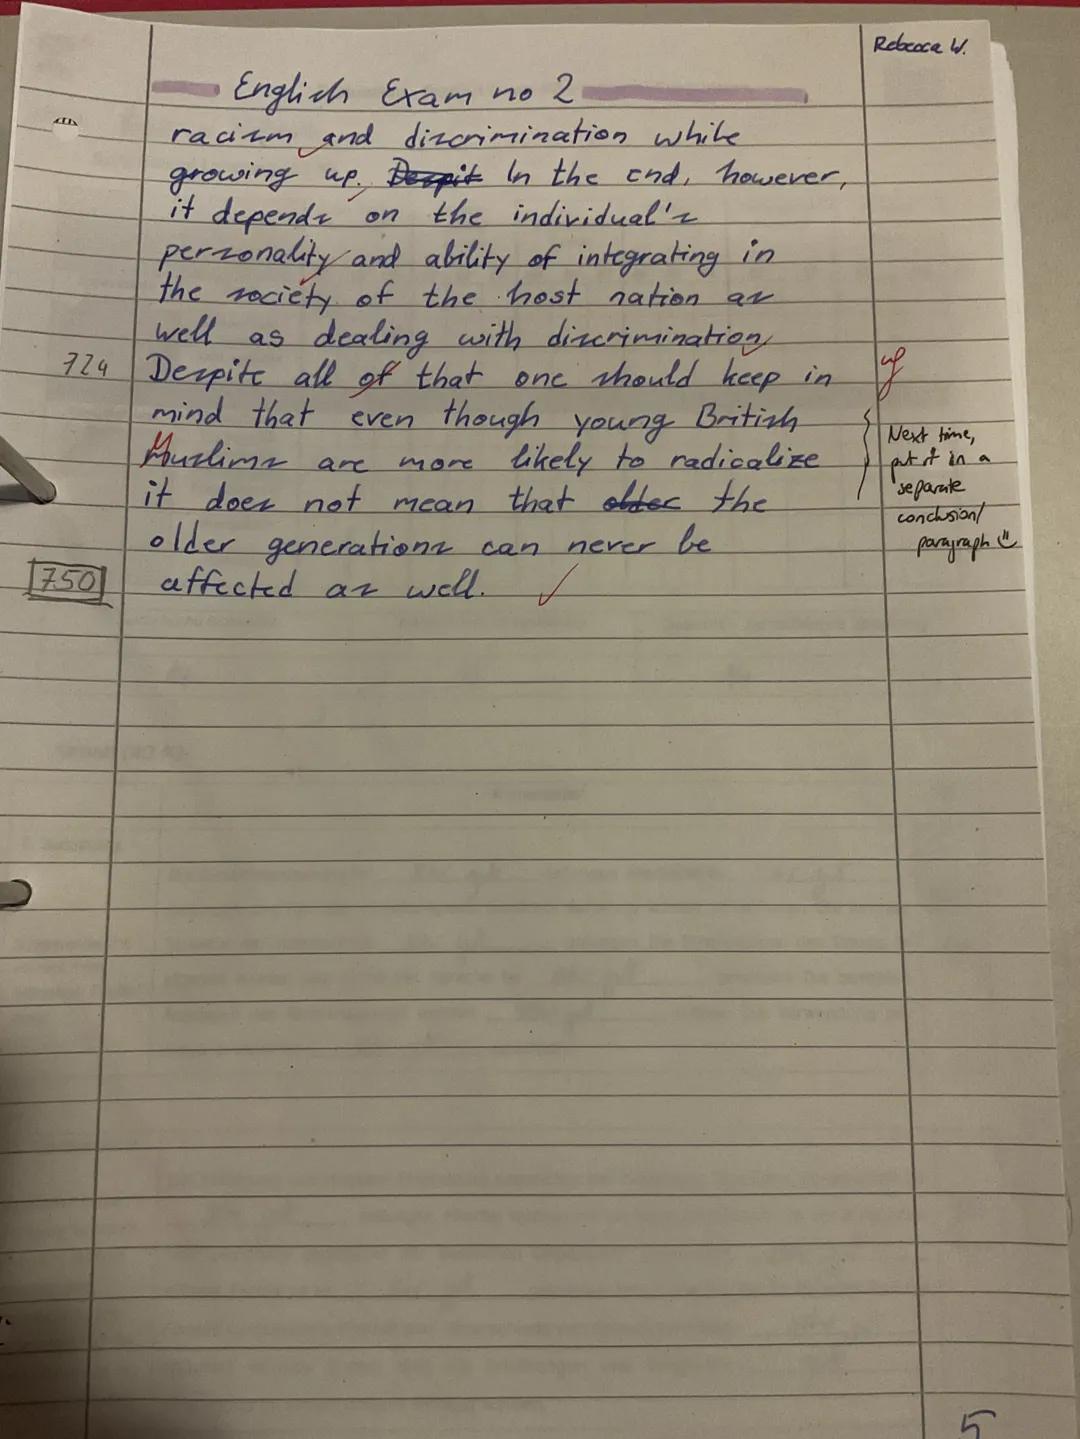 Rebecca W.
English Exam no 2
racism and discrimination while
growing up. Despit In the end, however,
it depends on the individual's
personality and ability of integrating in
the society of the host nation as
well as dealing with discrimination
724 Despite all of that one should keep in
mind that even though young British
Muslims are more likely to radicalize
it does not mean that older the
older generations can never be
750 affected as well.
Next time,
put it in a
separate
conclusion/
paragraph
5